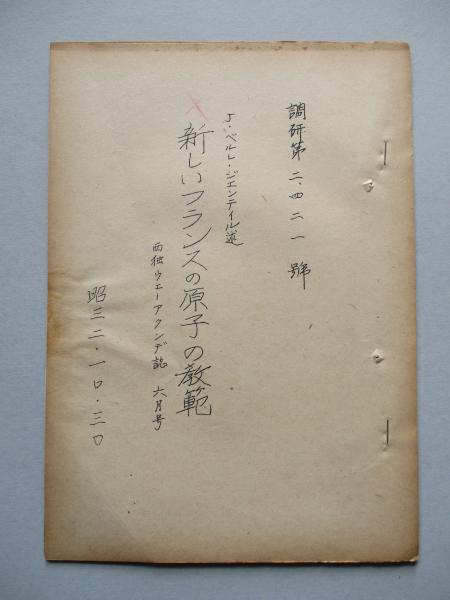 調研第二.四二一號
J・ペルレ・ジエンテイル述
新しいフランスの原子の教範
西独ウェーアクンデ誌 六月号
昭三二.一〇.三〇